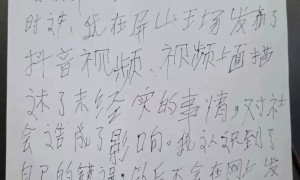 时文,我在屏山王场发布了
抖音视频、视频上面描
述了未经实的事情,对社
会造成了影响。我认识到了
自己的错误,以后不会在网上发